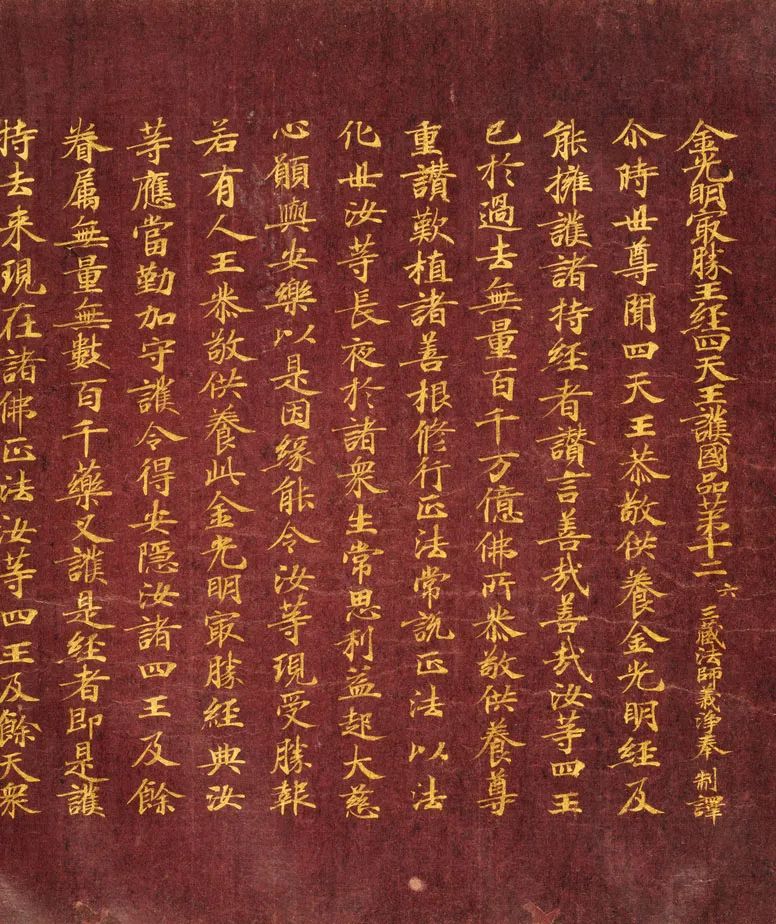 金光明㝡勝王經四天王護國品苐十二 六 三藏法師義淨奉 制譯
尒時世尊聞四天王恭敬供養金光明經及
能擁護諸持經者讃言善㢤善㢤汝苐四王
已於過去無量百千万億佛所恭敬供養尊
重讃歎植諸善根修行正法常説正法以法
化世汝苐長夜於諸衆生常思利益起大慈
心願與安樂以是因緣能令汝苐現受勝報
若有人王恭敬供養此金光明㝡勝經典汝
苐應當勤加守護令得安隱汝諸四王及餘
眷属無量無數百千藥叉護是經者即是護
持去来現在諸佛正法汝苐四王及餘天衆